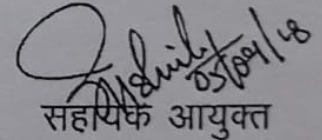 05/09/18
सहायक आयुक्त